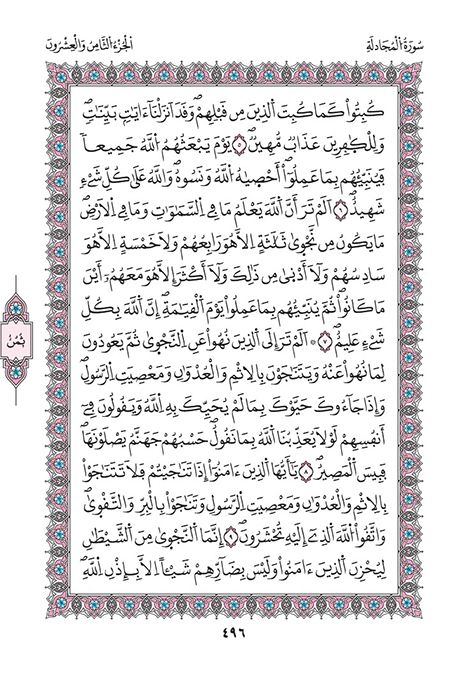 سُورَةُ الْمُجَادلَةِ
الْجُزْءُ الثَّامِنُ وَالْعِشْرُونَ
كُبِتُواْ كَمَا كُبِتَ اَلذِينَ مِن قَبْلِهِمْۖ وَقَدَ اَنزَلْنَآ ءَايَٰتِۢ بَيِّنَٰتٖۖ
وَلِلْكٰ۪فِرِينَ عَذَابٞ مُّهِينٞۖ ٥ يَوْمَ يَبْعَثُهُمُ اُللَّهُ جَمِيعاٗ
فَيُنَبِّئُهُم بِمَا عَمِلُوٓاْۖ أَحْص۪يٰهُ اُللَّهُ وَنَسُوهُۖ وَاللَّهُ عَلَىٰ كُلِّ شَےْءٖ
شَهِيدٌۖ ٦ اَلَمْ تَرَ أَنَّ اَللَّهَ يَعْلَمُ مَا فِے اِلسَّمَٰوَٰتِ وَمَا فِے اِلَارْضِۖ
مَا يَكُونُ مِن نَّجْو۪يٰ ثَلَٰثَةٍ اِلَّا هُوَ رَابِعُهُمْ وَلَا خَمْسَةٍ اِلَّا هُوَ
سَادِسُهُمْ وَلَآ أَدْن۪يٰ مِن ذَٰلِكَ وَلَآ أَكْثَرَ إِلَّا هُوَ مَعَهُمُۥٓ أَيْنَ
مَا كَانُواْۖ ثُمَّ يُنَبِّئُهُم بِمَا عَمِلُواْ يَوْمَ اَلْقِيَٰمَةِۖ إِنَّ اَللَّهَ بِكُلِّ
شَےْءٍ عَلِيمٌۖ ٧ ۞ اَلَمْ تَرَ إِلَى اَلذِينَ نُهُواْ عَنِ اِلنَّجْو۪يٰ ثُمَّ يَعُودُونَ
لِمَا نُهُواْ عَنْهُ وَيَتَنَٰجَوْنَ بِالِاثْمِ وَالْعُدْوَٰنِ وَمَعْصِيَتِ اِلرَّسُولِ
وَإِذَا جَآءُوكَ حَيَّوْكَ بِمَا لَمْ يُحَيِّكَ بِهِ اِللَّهُ وَيَقُولُونَ فِےٓ
أَنفُسِهِمْ لَوْلَا يُعَذِّبُنَا اَللَّهُ بِمَا نَقُولُۖ حَسْبُهُمْ جَهَنَّمُ يَصْلَوْنَهَاۖ
فَبِيسَ اَلْمَصِيرُۖ ٨ يَٰٓأَيُّهَا اَلذِينَ ءَامَنُوٓاْ إِذَا تَنَٰجَيْتُمْ فَلَا تَتَنَٰجَوْاْ
بِالِاثْمِ وَالْعُدْوَٰنِ وَمَعْصِيَتِ اِلرَّسُولِ وَتَنَٰجَوْاْ بِالْبِرِّ وَالتَّقْو۪يٰۖ
وَاتَّقُواْ اُللَّهَ اَلذِےٓ إِلَيْهِ تُحْشَرُونَۖ ٩ إِنَّمَا اَلنَّجْو۪يٰ مِنَ اَلشَّيْطَٰنِ
لِيُحْزِنَ اَلذِينَ ءَامَنُواْ وَلَيْسَ بِضَآرِّهِمْ شَيْـٔاً اِلَّا بِإِذْنِ اِللَّهِۖ
ثُمُنُ
٤٩٦